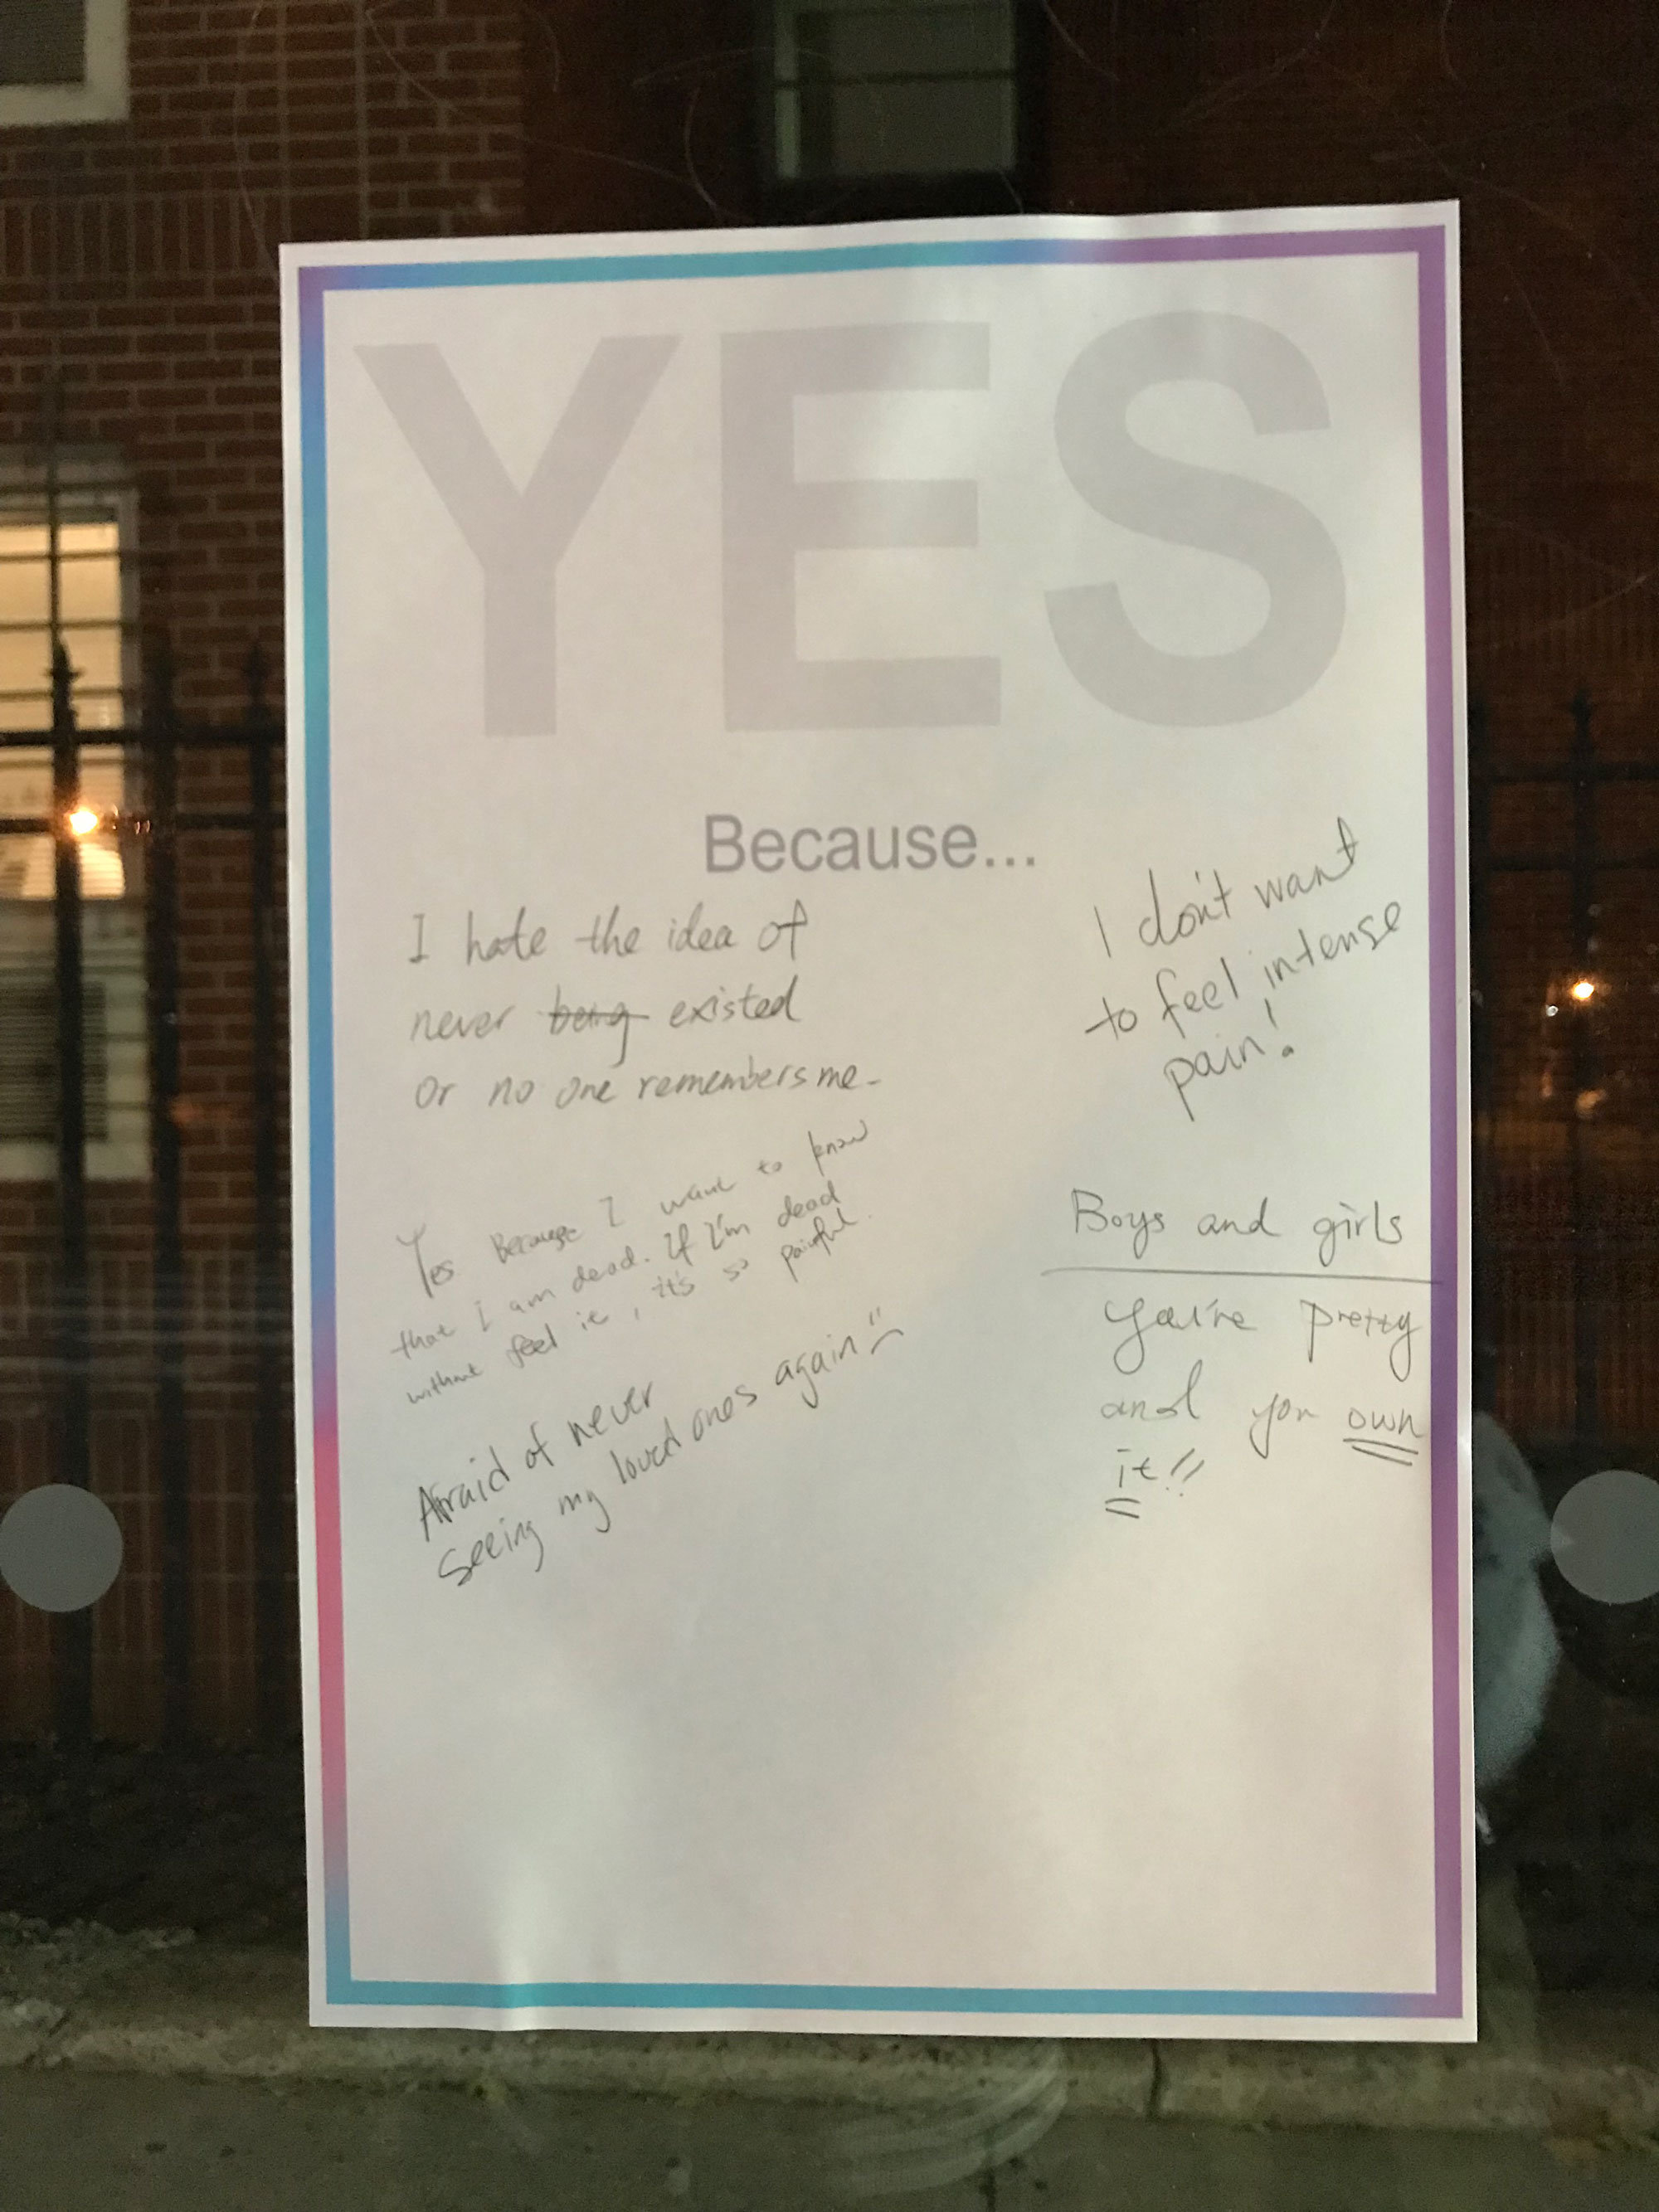 YES
Because...
I hate the idea of
never being existed
or no one remembers me.
Yes Because I want to know
that I am dead. If I'm dead
without feel it, it's so painful.
Afraid of never
seeing my loved ones again
I don't want
to feel intense
pain!
Boys and girls
You're pretty
and you own
it!!